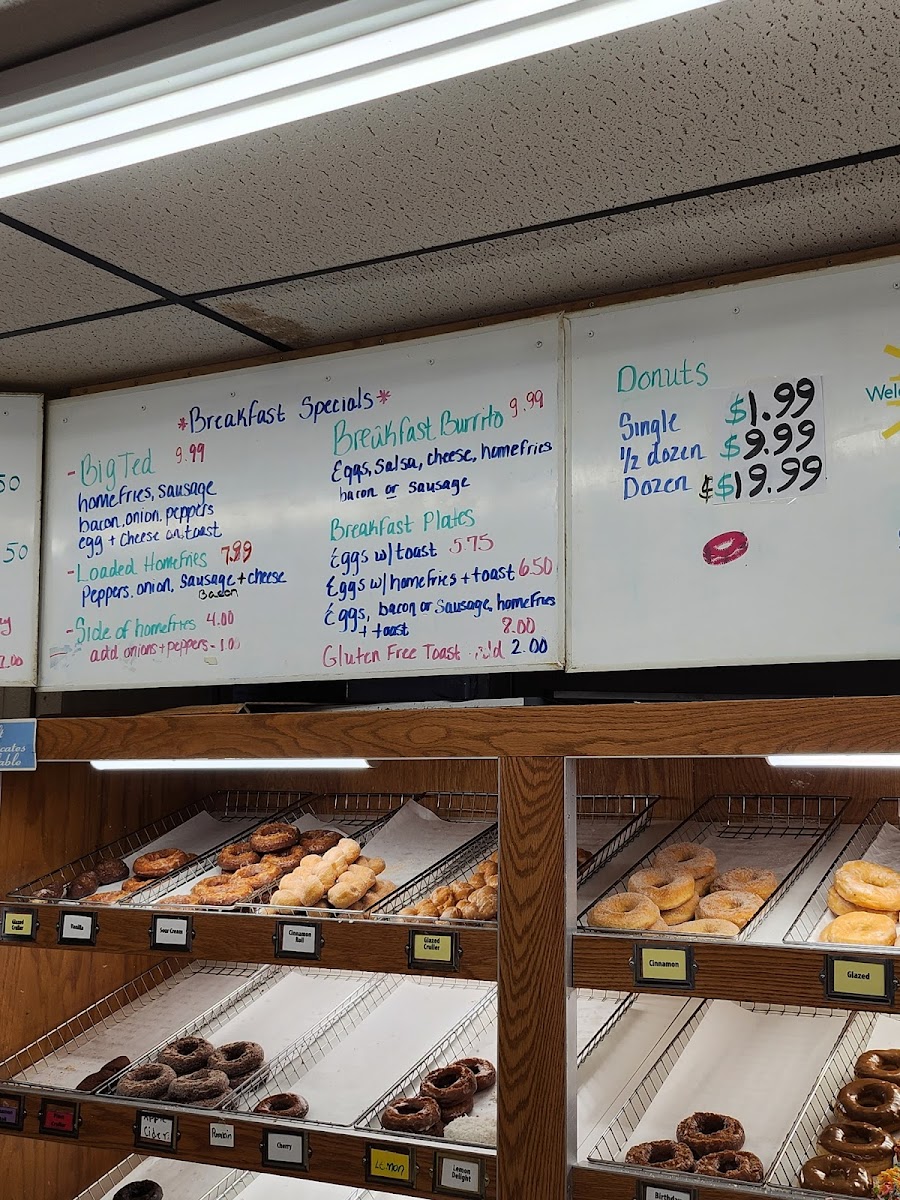 50
50
*Breakfast Specials*
- Big Ted 9.99
homefries, sausage
bacon, onion, peppers
egg + cheese on toast
- Loaded Homefries 7.99
Peppers, onion, sausage + cheese
Bacon
- Side of homefries 4.00
add onions + peppers - 1.00
Breakfast Burrito 9.99
Eggs, salsa, cheese, homefries
bacon or sausage
Breakfast Plates
Eggs w/ toast 5.75
Eggs w/ homefries + toast 6.50
Eggs, bacon or sausage, homefries
+ toast 8.00
Gluten Free Toast add 2.00
Donuts
Single $1.99
1/2 dozen $9.99
Dozen $19.99
Wel
Glazed
Cruller
Vanilla
Sour Cream
Cinnamon
Roll
Glazed
Cruller
Cinnamon
Glazed
Apple
Cider
Pumpkin
Cherry
Lemon
Lemon
Delight
Birthday